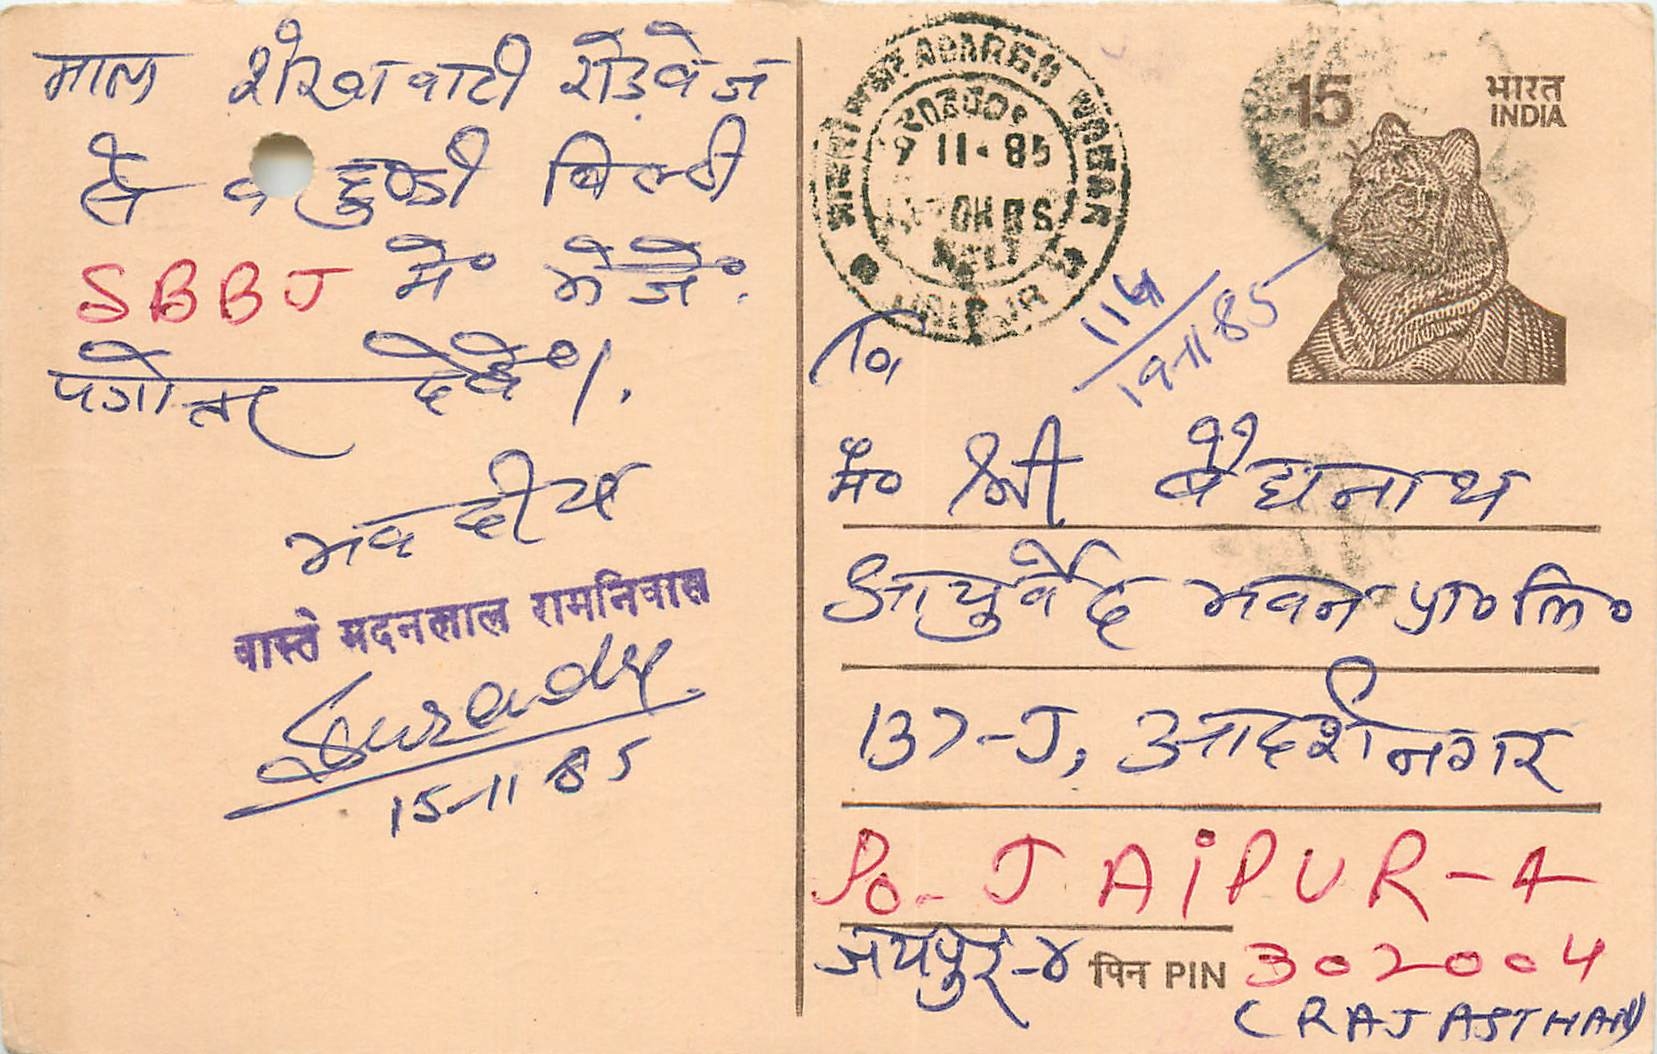 माल शेखावाटी रोडवेज
से व हुण्डी बिल्टी
SBBJ में भेजें.
पत्रोत्तर देवें।.
भवदीय
वास्ते मदनलाल रामनिवास
15-11 85
11-85
JAIPUR
15
भारत
INDIA
114
19-11-85
मै० श्री वैद्यनाथ
आयुर्वेद भवन प्रा० लि०
137-J, आदर्शनगर
Po- JAiPUR-4
जयपुर-४ पिन PIN 302004
(RAJASTHAN)